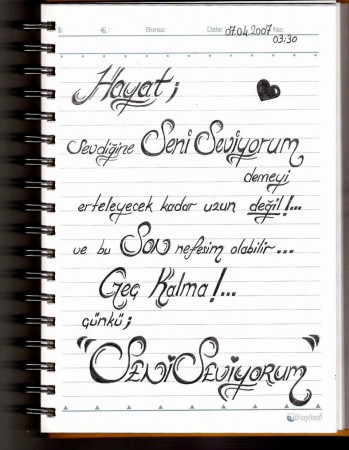 $: €: Borsa: Date: 07.04.2007 No:
03:30
Hayat;
Sevdiğine Seni Seviyorum
demeyi
erteleyecek kadar uzun değil!...
ve bu Son nefesim olabilir...
Geç Kalma!...
çünkü;
"SENİ SEVİYORUM"